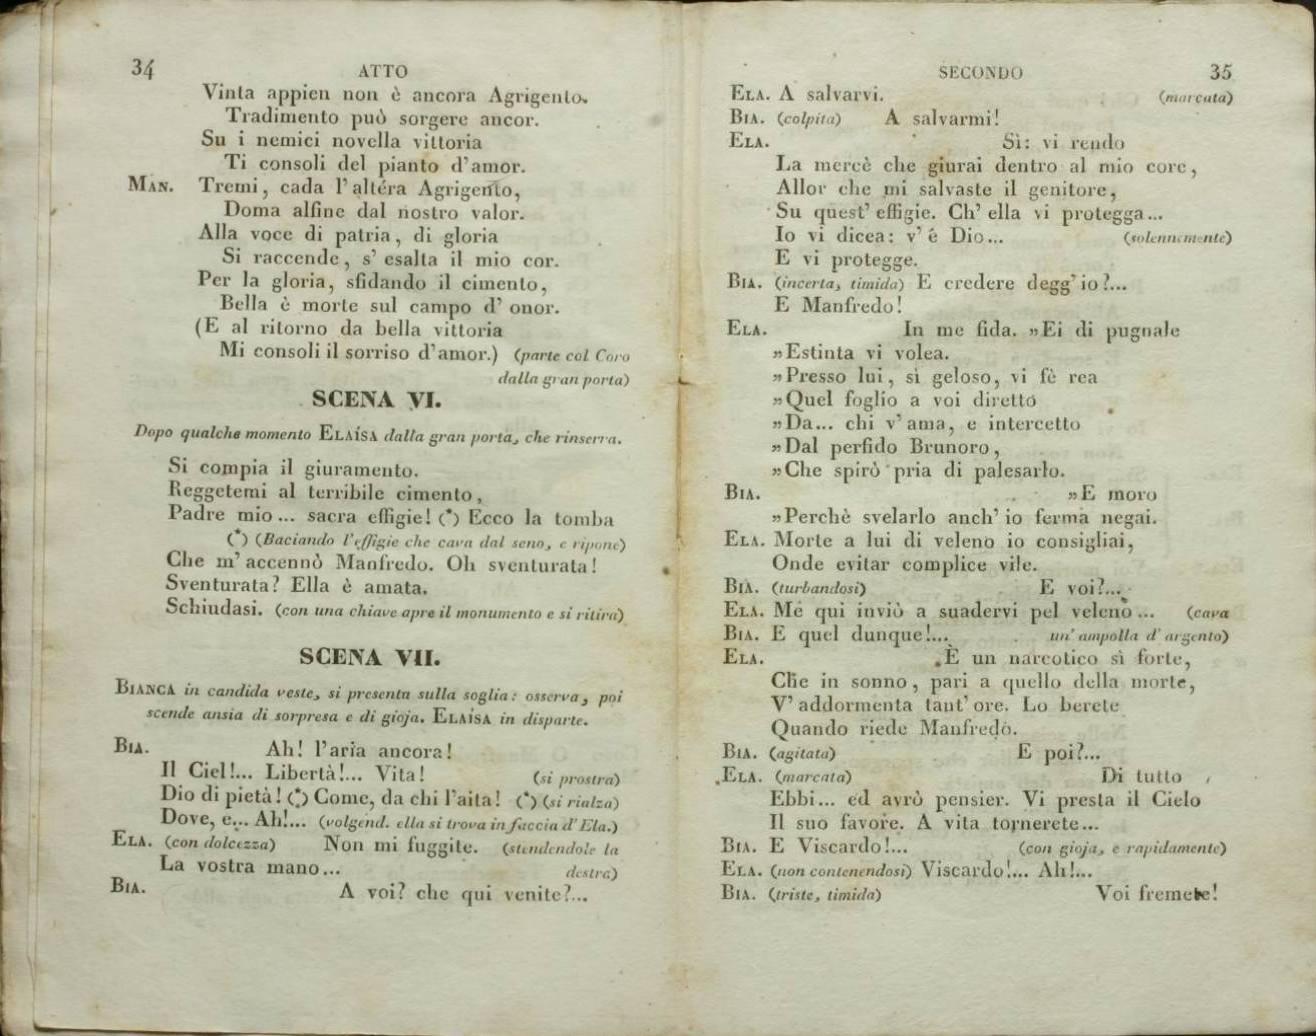 34
ATTO
Vinta appien non è ancora Agrigento.
Tradimento può sorgere ancor.
Su i nemici novella vittoria
Ti consoli del pianto d'amor.
MAN. Tremi, cada l'altéra Agrigento,
Doma alfine dal nostro valor.
Alla voce di patria, di gloria
Si raccende, s' esalta il mio cor.
Per la gloria, sfidando il cimento,
Bella è morte sul campo d' onor.
(E al ritorno da bella vittoria
Mi consoli il sorriso d'amor.) (parte col Coro
dalla gran porta)
SCENA VI.
Dopo qualche momento ELAÍSA dalla gran porta, che rinserra.
Si compia il giuramento.
Reggetemi al terribile cimento,
Padre mio... sacra effigie! (*) Ecco la tomba
(*) (Baciando l'effigie che cava dal seno, e ripone)
Che m' accennò Manfredo. Oh sventurata!
Sventurata? Ella è amata.
Schiudasi. (con una chiave apre il monumento e si ritira)
SCENA VII.
BIANCA in candida veste, si presenta sulla soglia: osserva, poi
scende ansia di sorpresa e di gioja. ELAÍSA in disparte.
BIA. Ah! l'aria ancora!
Il Ciel!... Libertà!... Vita! (si prostra)
Dio di pietà! (*) Come, da chi l'aita! (*) (si rialza)
Dove, e... Ah!... (volgend. ella si trova in faccia d'Ela.)
ELA. (con dolcezza) Non mi fuggite. (stendendole la
La vostra mano... destra)
BIA. A voi? che qui venite?...
SECONDO
35
ELA. A salvarvi. (marcata)
BIA. (colpita) A salvarmi!
ELA. Sì: vi rendo
La mercè che giurai dentro al mio core,
Allor che mi salvaste il genitore,
Su quest' effigie. Ch' ella vi protegga...
Io vi dicea: v' é Dio... (solennemente)
E vi protegge.
BIA. (incerta, timida) E credere degg' io?...
E Manfredo!
ELA. In me fida. »Ei di pugnale
»Estinta vi volea.
»Presso lui, sì geloso, vi fè rea
»Quel foglio a voi diretto
»Da... chi v' ama, e intercetto
»Dal perfido Brunoro,
»Che spirò pria di palesarlo.
BIA. »E moro
»Perchè svelarlo anch' io ferma negai.
ELA. Morte a lui di veleno io consigliai,
Onde evitar complice vile.
BIA. (turbandosi) E voi?...
ELA. Me qui inviò a suadervi pel veleno... (cava
BIA. E quel dunque!... un' ampolla d' argento)
ELA. È un narcotico sì forte,
Che in sonno, pari a quello della morte,
V' addormenta tant' ore. Lo berete
Quando riede Manfredo.
BIA. (agitata) E poi?...
ELA. (marcata) Di tutto
Ebbi... ed avrò pensier. Vi presta il Cielo
Il suo favore. A vita tornerete...
BIA. E Viscardo!... (con gioja, e rapidamente)
ELA. (non contenendosi) Viscardo!... Ah!...
BIA. (triste, timida) Voi fremete!